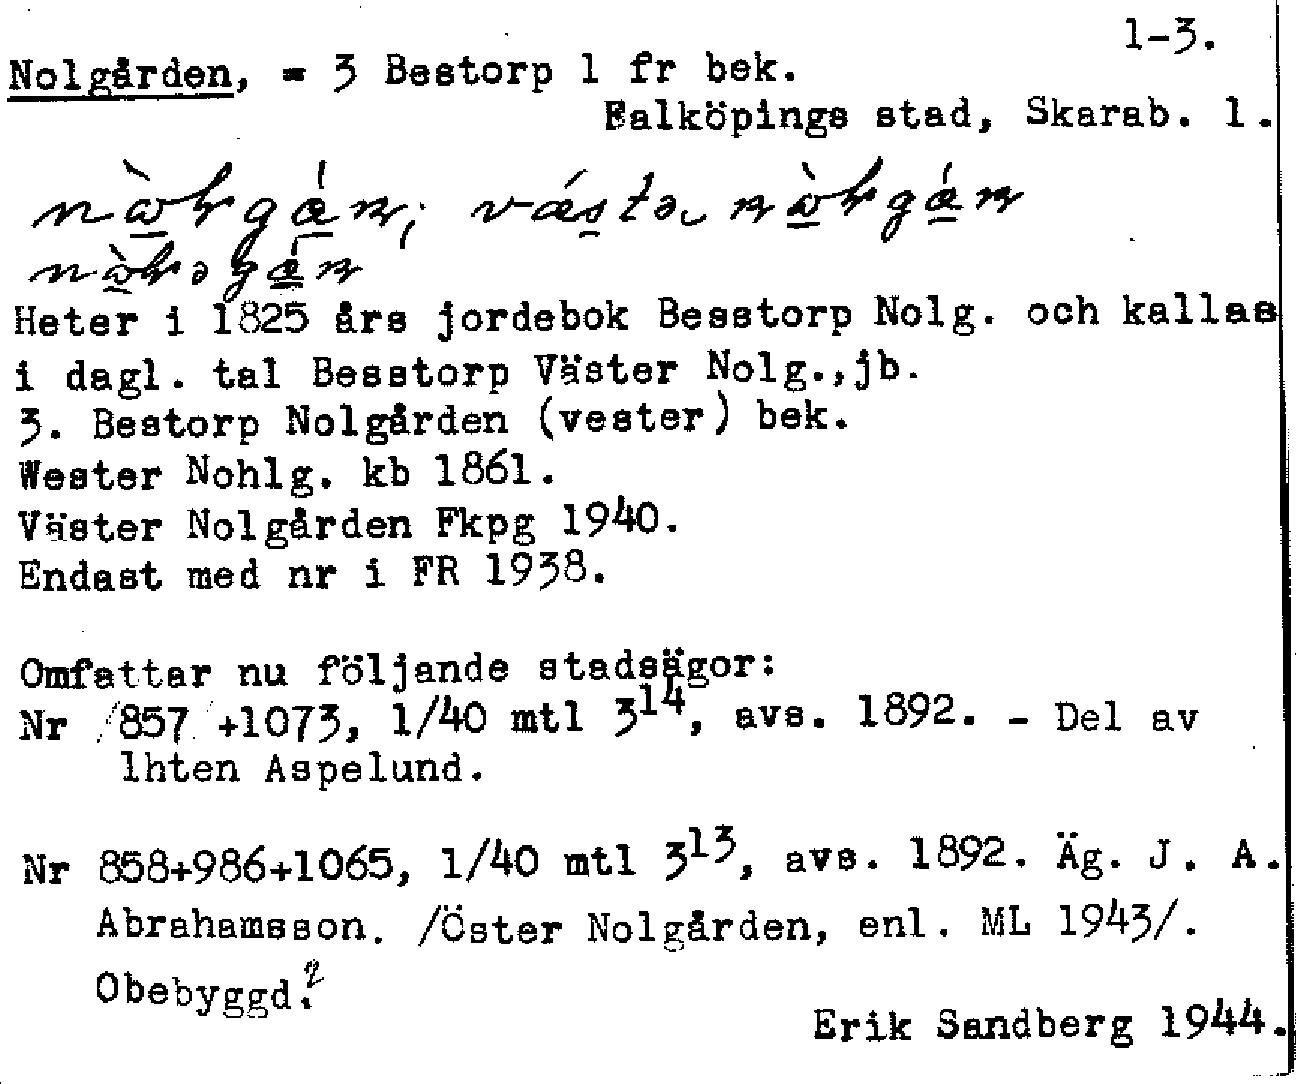 1-3.
Nolgården, = 3 Bestorp 1 fr bek.
Falköpings stad, Skarab. l.
Heter i 1825 års jordebok Besstorp Nolg. och kallas
i dagl. tal Besstorp Väster Nolg.,jb.
3. Bestorp Nolgården (vester) bek.
Wester Nohlg. kb 1861.
Väster Nolgården Fkpg 1940.
Endast med nr i FR 1938.
Omfattar nu följande stadsägor:
Nr /857 +1073, 1/40 mtl 3¹⁴, avs. 1892. - Del av
lhten Aspelund.
Nr 858+986+1065, 1/40 mtl 3¹³, avs. 1892. Äg. J. A.
Abrahamsson. /Öster Nolgården, enl. ML 1943/.
Obebyggd.?
Erik Sandberg 1944.